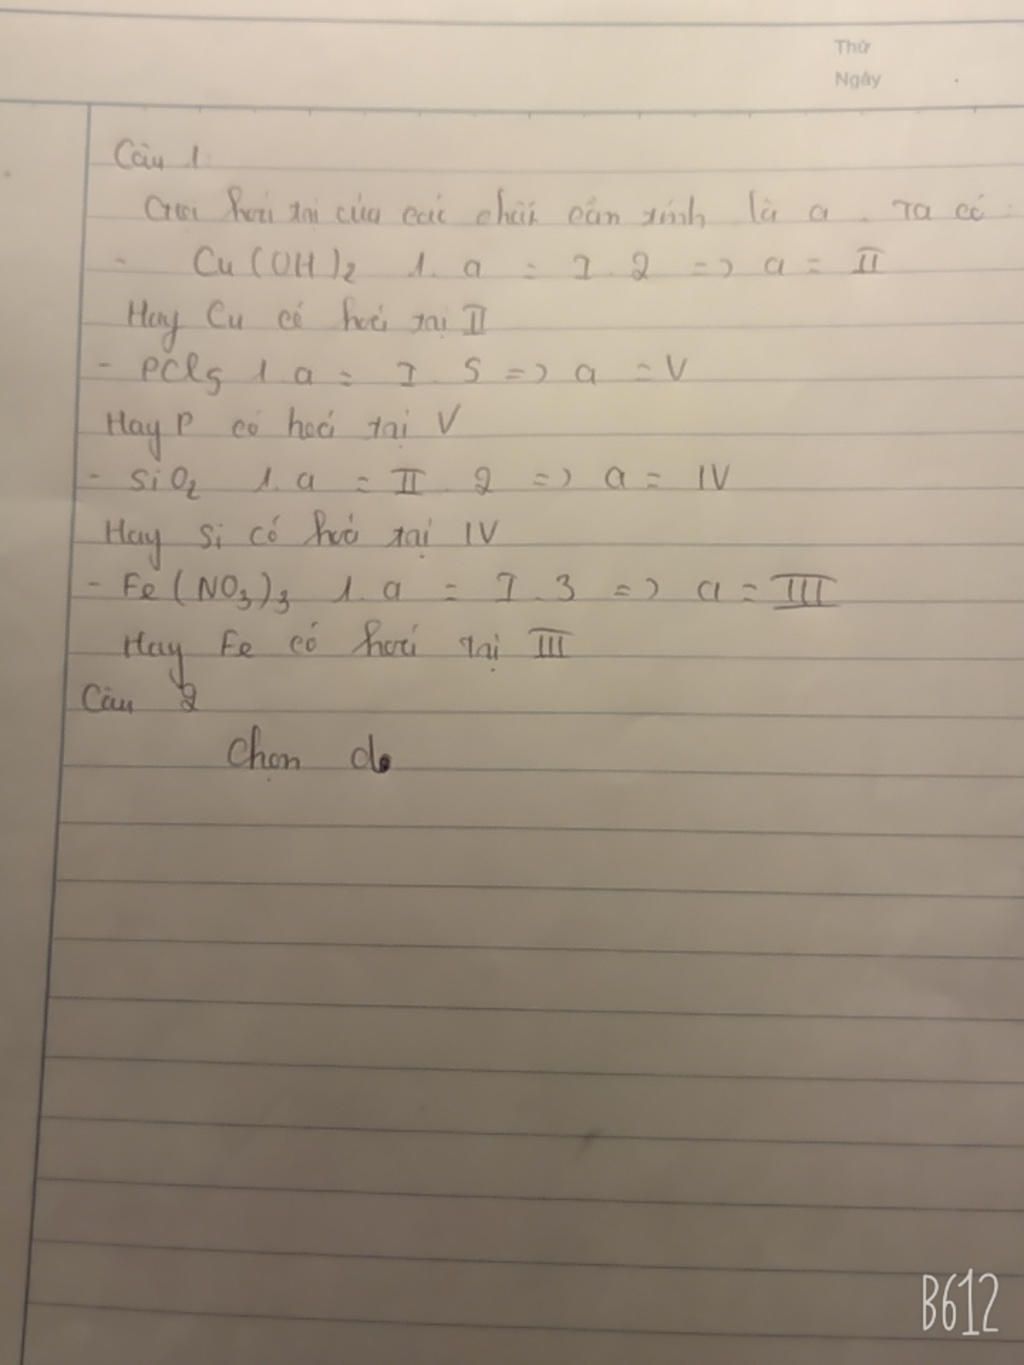 Thứ
Ngày
Câu 1
Gọi hoá trị của các chất cần tính là a. Ta có:
- Cu(OH)2 1.a = I.2 => a = II
Hay Cu có hoá trị II
- PCl5 1.a = I.5 => a = V
Hay P có hoá trị V
- SiO2 1.a = II.2 => a = IV
Hay Si có hoá trị IV
- Fe(NO3)3 1.a = I.3 => a = III
Hay Fe có hoá trị III
Câu 2
Chọn d.
B612